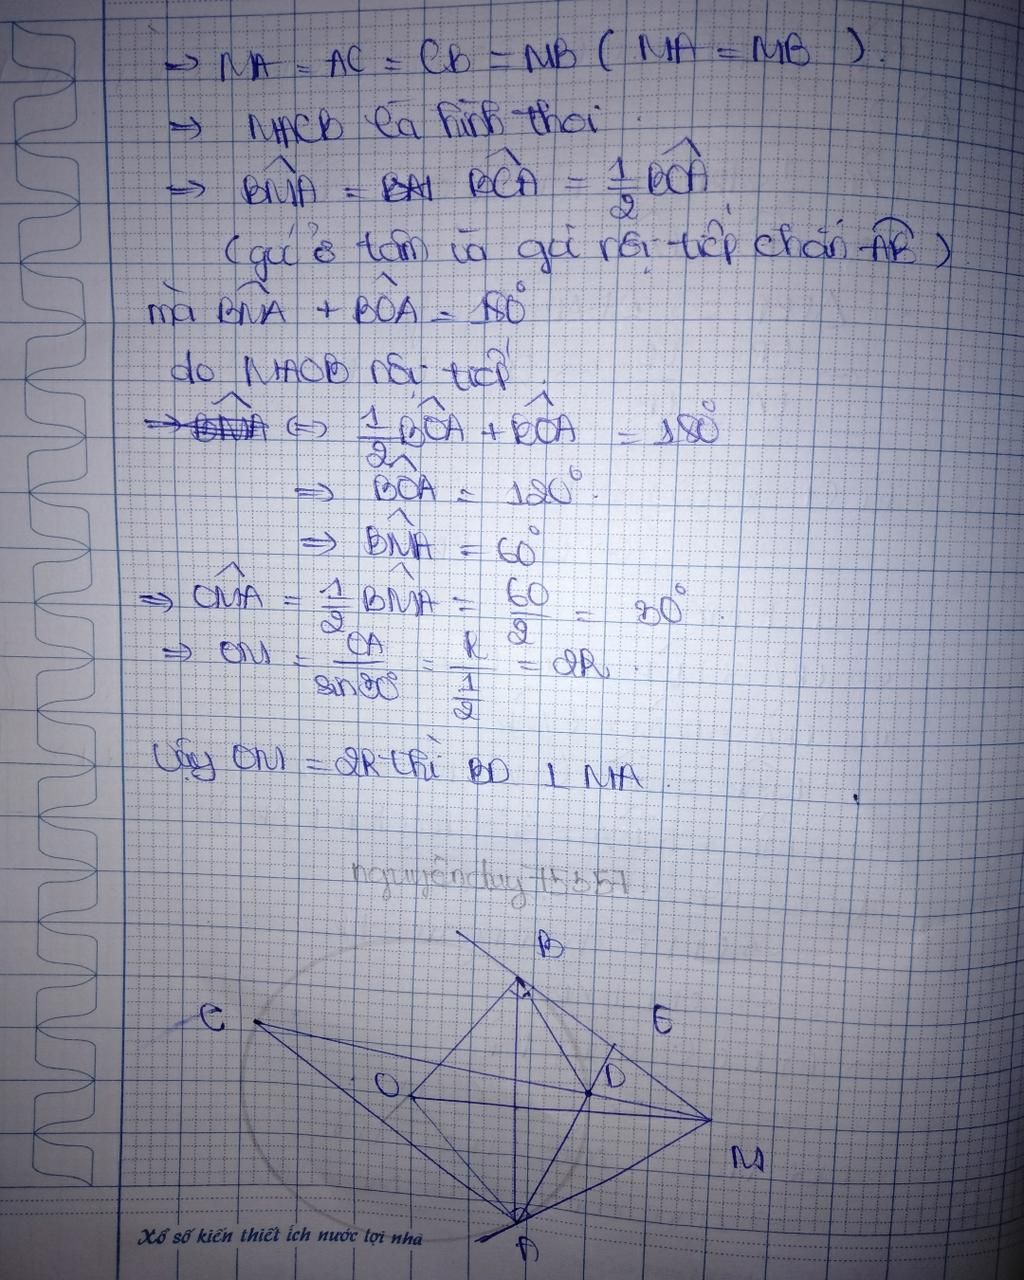 ⇒ MA = AC = CB = MB ( MA = MB ).
⇒ MACB là hình thoi.
⇒ BMA = BCA = 1/2 BOA
(góc ở tâm và góc nội tiếp chắn AB)
mà BMA + BOA = 180°
do MAOB nội tiếp.
⇔ 1/2 BOA + BOA = 180°
⇒ BOA = 120°.
⇒ BMA = 60°
⇒ OMA = 1/2 BMA = 60/2 = 30°.
⇒ OM = OA/sin30° = R/(1/2) = 2R.
Vậy OM = 2R thì BD ⊥ MA.
nguyễnduy75357
B
C
E
O
D
M
A
Xổ số kiến thiết ích nước lợi nhà